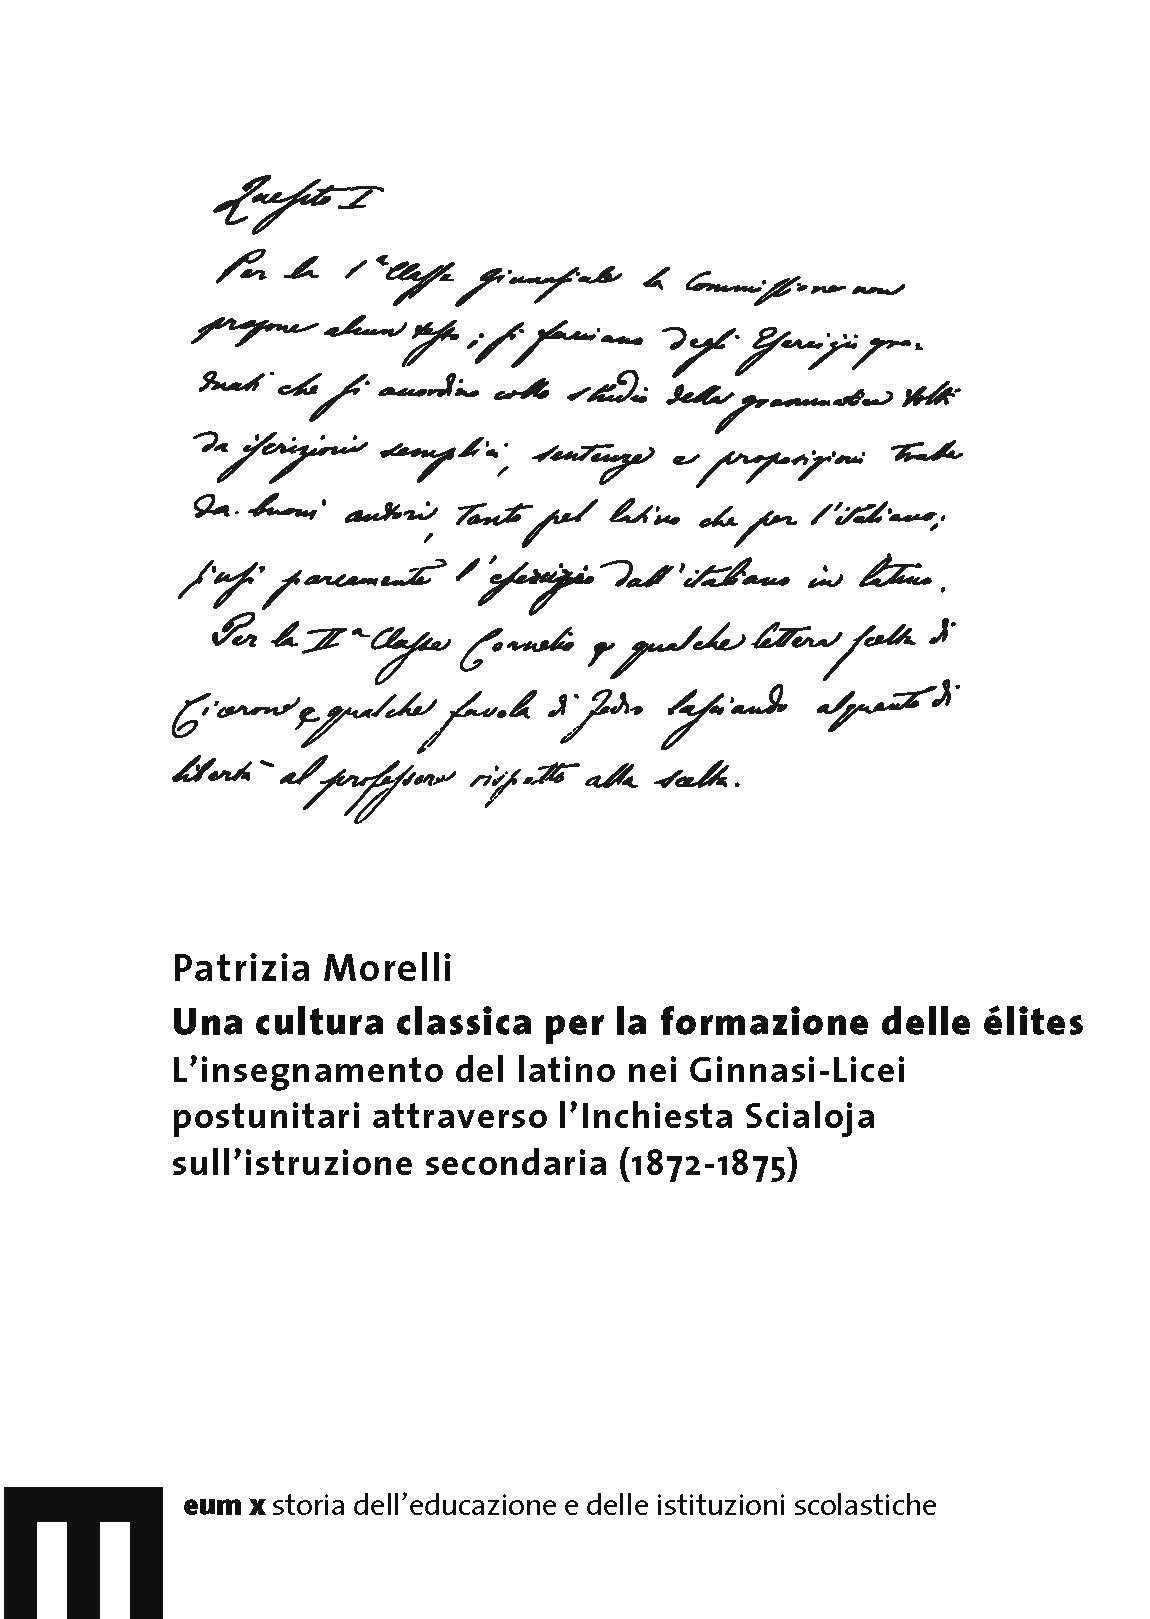 Quesito I
Per la 1ª Classe ginnasiale la Commissione non
propone alcun testo; si facciano degli Esercizii gra-
duati che si accordino collo studio della grammatica tolti
da iscrizioni semplici, sentenze e proposizioni tratte
da buoni autori, tanto pel latino che per l'italiano;
si usi parcamente l'esercizio dall'italiano in latino.
Per la IIª Classe Cornelio e qualche lettera scelta di
Cicerone e qualche favola di Fedro lasciando alquanto di
libertà al professore rispetto alla scelta.
Patrizia Morelli
Una cultura classica per la formazione delle élites
L'insegnamento del latino nei Ginnasi-Licei
postunitari attraverso l'Inchiesta Scialoja
sull'istruzione secondaria (1872-1875)
eum x storia dell'educazione e delle istituzioni scolastiche